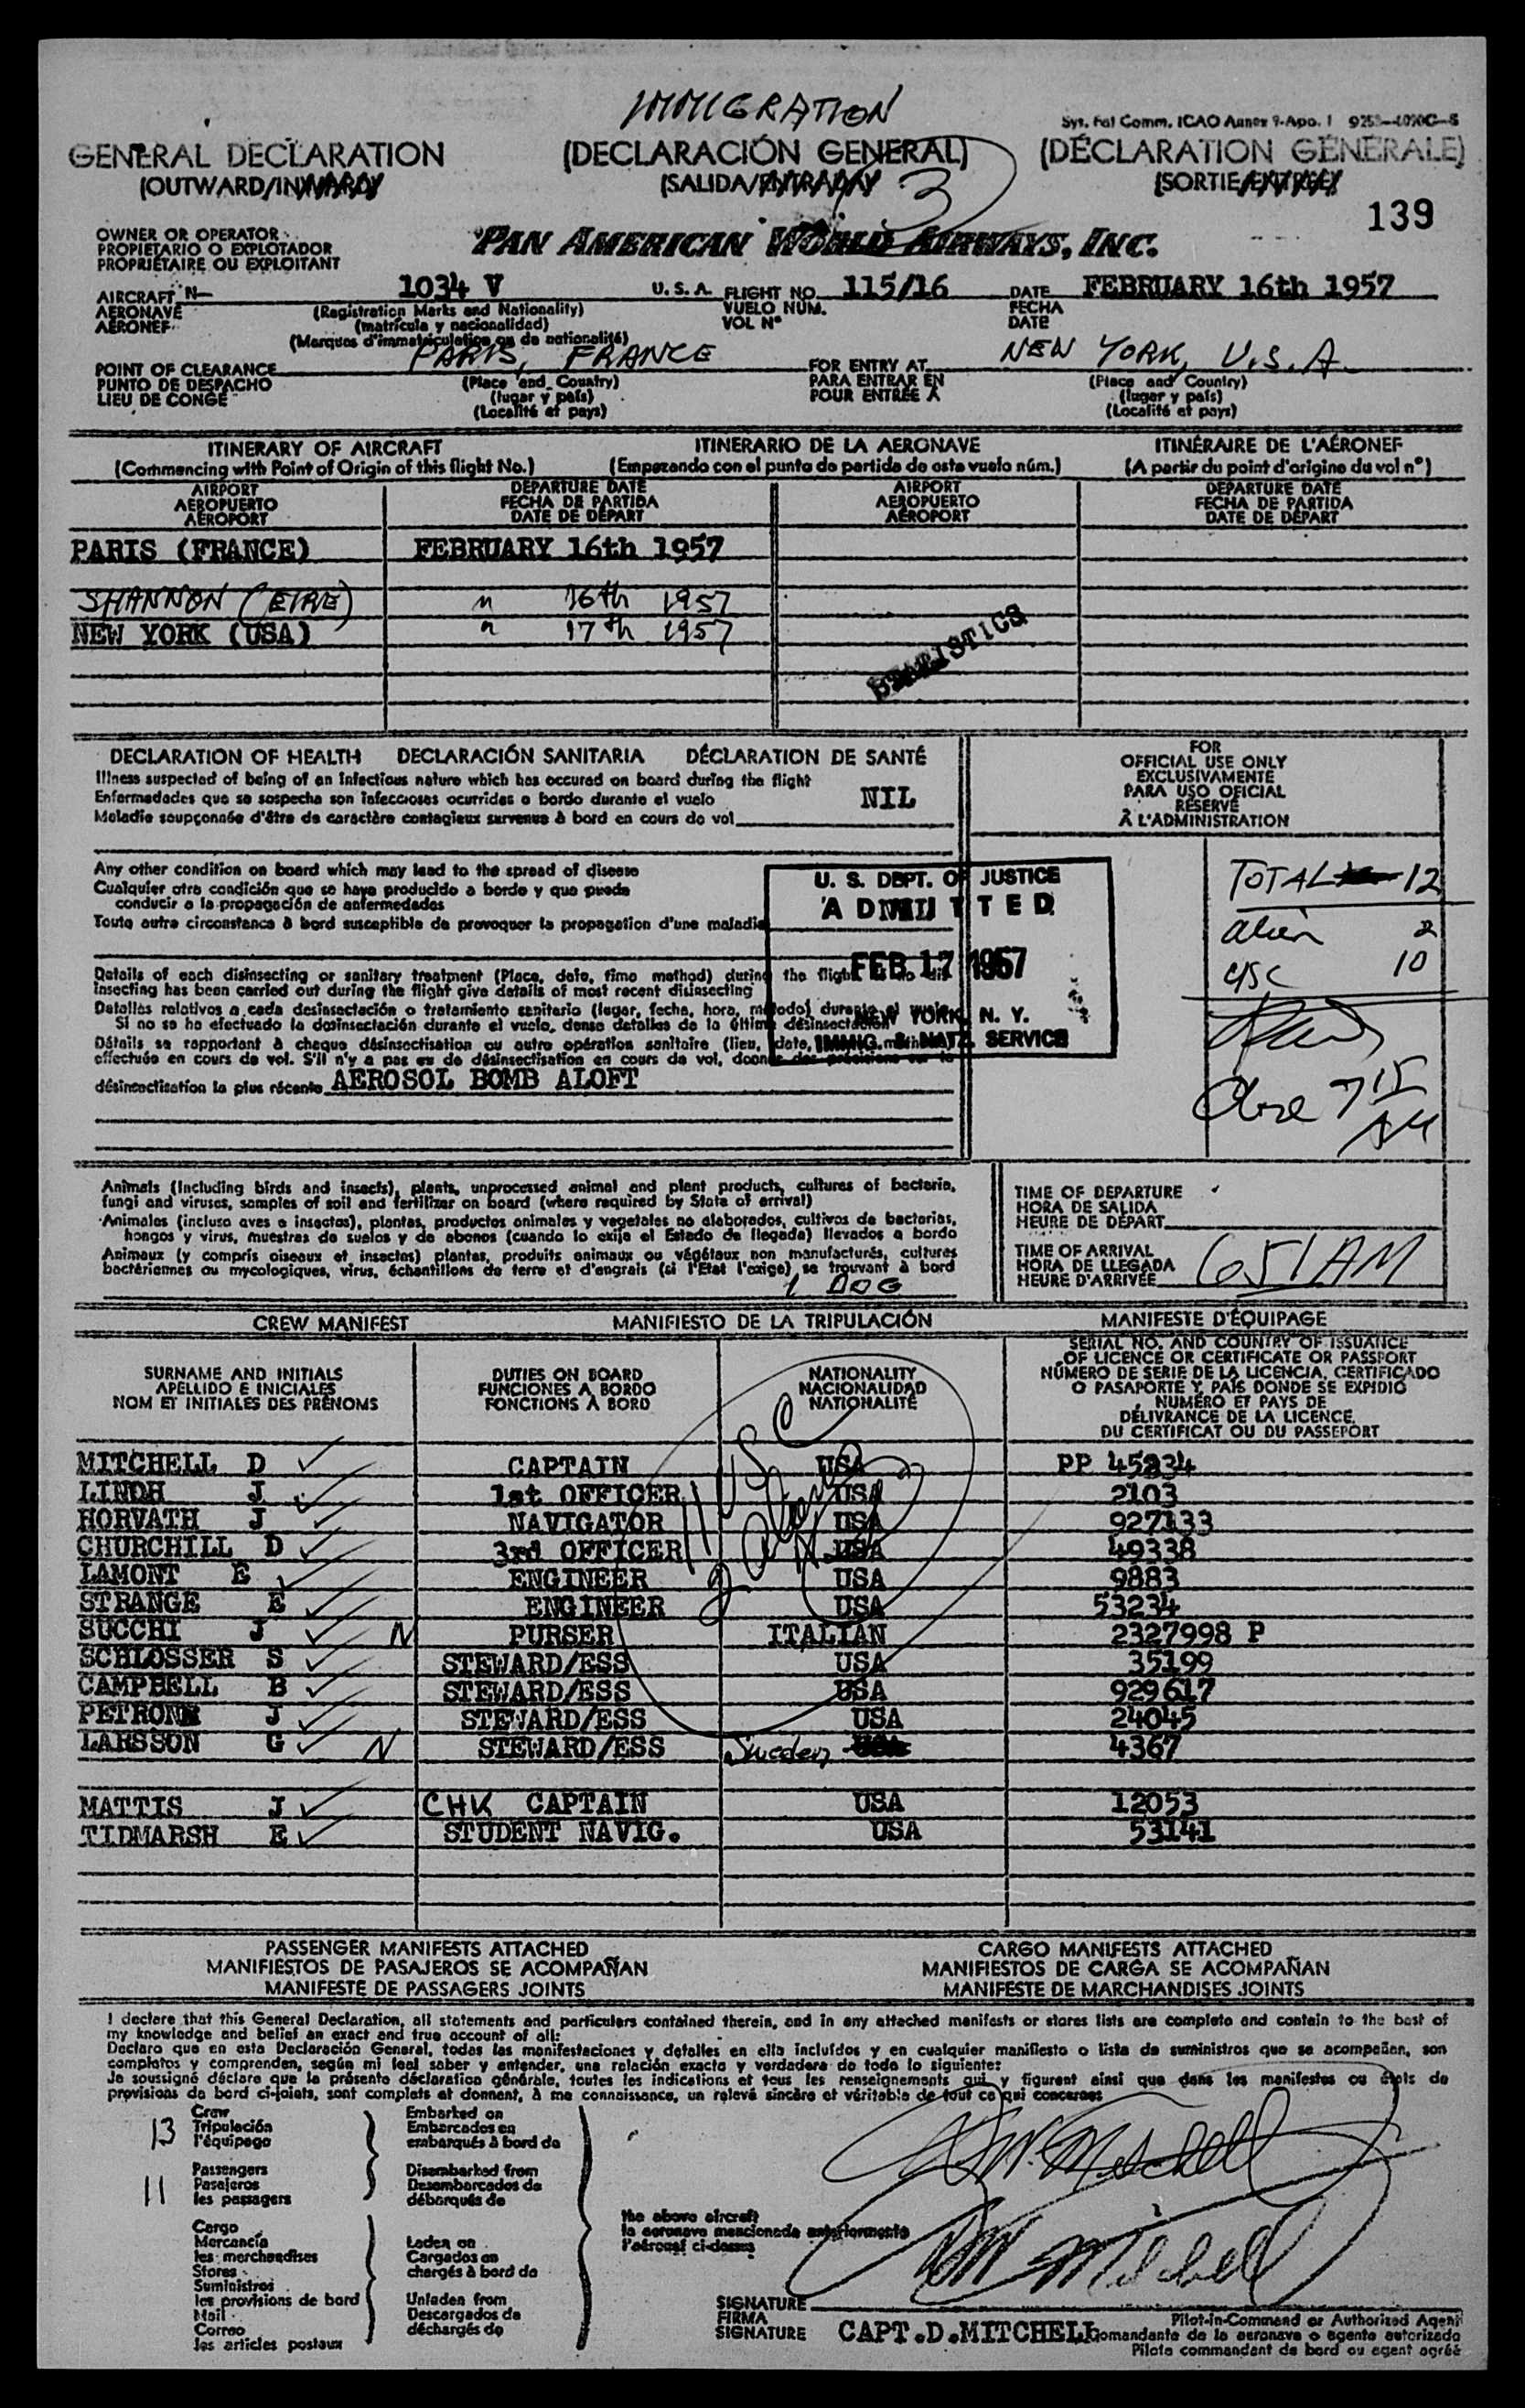 IMMIGRATION
Sys. Fal Comm. ICAO Annex 9-App. 1
GENERAL DECLARATION (DECLARACIÓN GENERAL) (DÉCLARATION GÉNÉRALE)
(OUTWARD/INWARD) (SALIDA/ENTRADA) (SORTIE/ENTRÉE)
3
139
OWNER OR OPERATOR
PROPIETARIO O EXPLOTADOR
PROPRIÉTAIRE OU EXPLOITANT
PAN AMERICAN WORLD AIRWAYS, INC.
AIRCRAFT N- 1034 V U.S.A. FLIGHT NO. 115/16 DATE FEBRUARY 16th 1957
AERONAVE (Registration Marks and Nationality) VUELO NÚM. FECHA
AÉRONEF (matrícula y nacionalidad) VOL Nº DATE
(Marques d'immatriculation ou de nationalité)
POINT OF CLEARANCE PARIS, FRANCE FOR ENTRY AT NEW YORK, U.S.A.
PUNTO DE DESPACHO (Place and Country) PARA ENTRAR EN (Place and Country)
LIEU DE CONGÉ (lugar y país) POUR ENTRÉE À (lugar y país)
(Localité et pays) (Localité et pays)
ITINERARY OF AIRCRAFT ITINERARIO DE LA AERONAVE ITINÉRAIRE DE L'AÉRONEF
(Commencing with Point of Origin of this flight No.) (Empezando con el punto de partida de esta vuelo núm.) (A partir du point d'origine du vol nº)
AIRPORT DEPARTURE DATE AIRPORT DEPARTURE DATE
AEROPUERTO FECHA DE PARTIDA AEROPUERTO FECHA DE PARTIDA
AÉROPORT DATE DE DÉPART AÉROPORT DATE DE DÉPART
PARIS (FRANCE) FEBRUARY 16th 1957
SHANNON (EIRE) " 16th 1957
NEW YORK (USA) " 17th 1957
STATISTICS
DECLARATION OF HEALTH DECLARACIÓN SANITARIA DÉCLARATION DE SANTÉ
Illness suspected of being of an infectious nature which has occured on board during the flight
Enfermedades que se sospecha son infecciosas ocurridas a bordo durante el vuelo NIL
Maladie soupçonnée d'être de caractère contagieux survenue à bord en cours de vol
FOR
OFFICIAL USE ONLY
EXCLUSIVAMENTE
PARA USO OFICIAL
RÉSERVÉ
À L'ADMINISTRATION
Any other condition on board which may lead to the spread of disease
Cualquier otra condición que se haya producido a bordo y que pueda
conducir a la propagación de enfermedades
Toute autre circonstance à bord susceptible de provoquer la propagation d'une maladie
U. S. DEPT. OF JUSTICE
ADMITTED
FEB 17 1957
NEW YORK, N. Y.
IMMIG. & NATZ. SERVICE
TOTAL 12
alien 2
USC 10
Close 7 15 AM
Details of each disinsecting or sanitary treatment (Place, date, time method) during the flight
insecting has been carried out during the flight give details of most recent disinsecting
Detalles relativos a cada desinsectación o tratamiento sanitario (lugar, fecha, hora, método) durante el vuelo
Si no se ha efectuado la desinsectación durante el vuelo, dense detalles de la última desinsectación
Détails se rapportant à chaque désinsectisation ou autre opération sanitaire (lieu, date,
effectuée en cours de vol. S'il n'y a pas eu de désinsectisation en cours de vol, donner des précisions sur la
désinsectisation la plus récente AEROSOL BOMB ALOFT
Animals (Including birds and insects), plants, unprocessed animal and plant products, cultures of bacteria,
fungi and viruses, samples of soil and fertilizer on board (where required by State of arrival)
Animales (incluso aves e insectos), plantas, productos animales y vegetales no elaborados, cultivos de bacterias,
hongos y virus, muestras de suelos y de abonos (cuando lo exija el Estado de llegada) llevados a bordo
Animaux (y compris oiseaux et insectes) plantes, produits animaux ou végétaux non manufacturés, cultures
bactériennes ou mycologiques, virus, échantillons de terre et d'engrais (si l'Etat l'exige) se trouvant à bord
1 DOG
TIME OF DEPARTURE
HORA DE SALIDA
HEURE DE DÉPART
TIME OF ARRIVAL
HORA DE LLEGADA
HEURE D'ARRIVÉE 651 AM
CREW MANIFEST MANIFIESTO DE LA TRIPULACIÓN MANIFESTE D'ÉQUIPAGE
SURNAME AND INITIALS
APELLIDO E INICIALES
NOM ET INITIALES DES PRÉNOMS
DUTIES ON BOARD
FUNCIONES A BORDO
FONCTIONS À BORD
NATIONALITY
NACIONALIDAD
NATIONALITÉ
SERIAL NO. AND COUNTRY OF ISSUANCE
OF LICENCE OR CERTIFICATE OR PASSPORT
NÚMERO DE SERIE DE LA LICENCIA, CERTIFICADO
O PASAPORTE Y PAÍS DONDE SE EXPIDIÓ
NUMÉRO ET PAYS DE
DÉLIVRANCE DE LA LICENCE,
DU CERTIFICAT OU DU PASSEPORT
11 USC
2 Alien
MITCHELL D CAPTAIN USA PP 45234
LINDH J 1st OFFICER USA 2103
HORVATH J NAVIGATOR USA 927133
CHURCHILL D 3rd OFFICER USA 49338
LAMONT E ENGINEER USA 9883
STRANGE E ENGINEER USA 53234
SUCCHI J N PURSER ITALIAN 2327998 P
SCHLOSSER S STEWARD/ESS USA 35199
CAMPBELL B STEWARD/ESS USA 929617
PETRONE J STEWARD/ESS USA 24045
LARSSON G N STEWARD/ESS Sweden 4367
MATTIS J CHK CAPTAIN USA 12053
TIDMARSH E STUDENT NAVIG. USA 53141
PASSENGER MANIFESTS ATTACHED CARGO MANIFESTS ATTACHED
MANIFIESTOS DE PASAJEROS SE ACOMPAÑAN MANIFIESTOS DE CARGA SE ACOMPAÑAN
MANIFESTE DE PASSAGERS JOINTS MANIFESTE DE MARCHANDISES JOINTS
I declare that this General Declaration, all statements and particulars contained therein, and in any attached manifests or stores lists are complete and contain to the best of
my knowledge and belief an exact and true account of all:
Declaro que en esta Declaración General, todas las manifestaciones y detalles en ella incluídos y en cualquier manifiesto o lista de suministros que se acompañan, son
completos y comprenden, según mi leal saber y entender, una relación exacta y verdadera de todo lo siguiente:
Je soussigné déclare que la présente déclaration générale, toutes les indications et tous les renseignements qui y figurent ainsi que dans les manifestes ou états de
provisions de bord ci-joints, sont complets et donnent, à ma connaissance, un relevé sincère et véritable de tout ce qui concerne:
13 Crew
Tripulación
l'équipage
Embarked on
Embarcados en
embarqués à bord de
11 Passengers
Pasajeros
les passagers
Disembarked from
Desembarcados de
débarqués de
Cargo
Mercancía
les merchandises
Stores
Suministros
les provisions de bord
Mail
Correo
les articles postaux
Laden on
Cargados en
chargés à bord de
Unladen from
Descargados de
déchargés de
the above aircraft
la aeronave mencionada anteriormente
l'aéronef ci-dessus
D.W. Mitchell
DW Mitchell
SIGNATURE
FIRMA
SIGNATURE
CAPT.D.MITCHELL
Pilot-in-Command or Authorized Agent
Comandante de la aeronave o agente autorizado
Pilote commandant de bord ou agent agréé